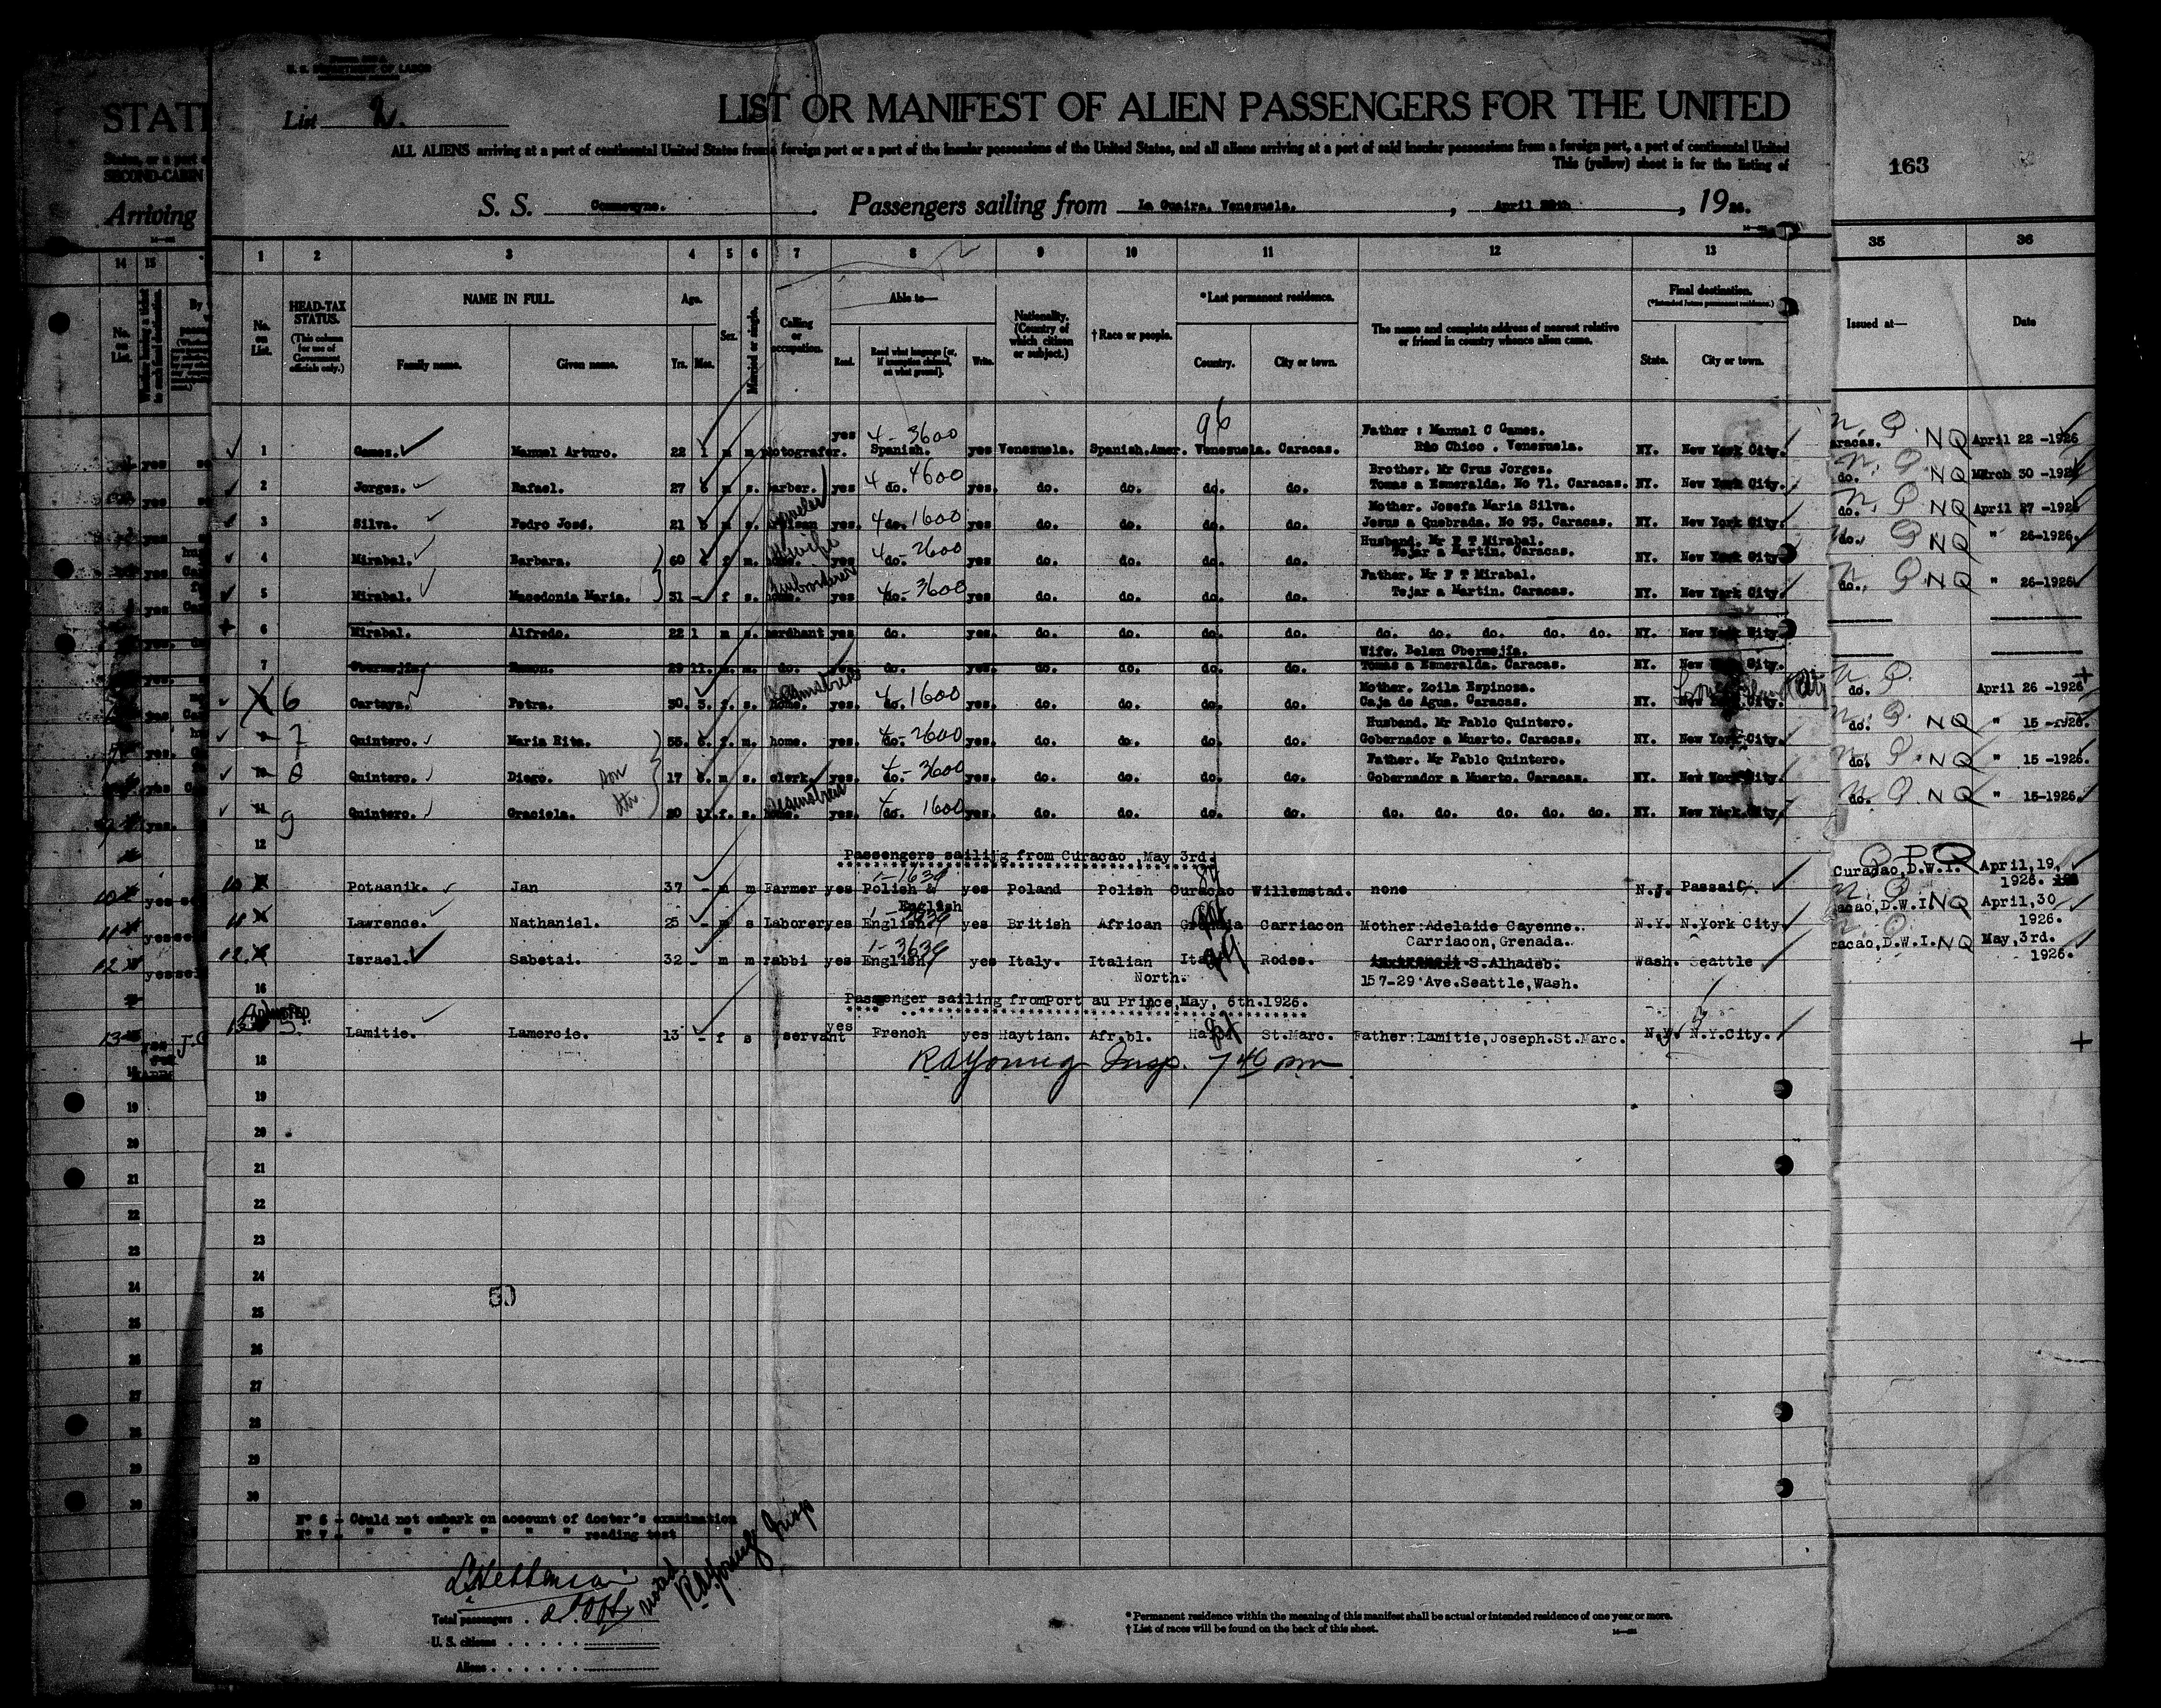 U. S. DEPARTMENT OF LABOR
STATE
List 2.
LIST OR MANIFEST OF ALIEN PASSENGERS FOR THE UNITED
ALL ALIENS arriving at a port of continental United States from a foreign port or a port of the insular possessions of the United States, and all aliens arriving at a port of said insular possessions from a foreign port, a port of continental United
This (yellow) sheet is for the listing of
States, or a port
SECOND-CABIN
163
Arriving
S. S. Commewyne. Passengers sailing from La Guaira, Venezuela. , April , 1926.
14 15 1 2 3 4 5 6 7 8 9 10 11 12 13 35 36
No. on List. HEAD-TAX STATUS. (This column for use of Government officials only.) NAME IN FULL. Family name. Given name. Age. Yrs. Mos. Sex. Married or single. Calling or occupation. Able to— Read. Read what language [or, if exemption claimed, on what ground]. Write. Nationality. (Country of which citizen or subject.) †Race or people. *Last permanent residence. Country. City or town. The name and complete address of nearest relative or friend in country whence alien came. Final destination. (*Intended future permanent residence.) State. City or town. Issued at— Date
96
1 Games. Manuel Arturo. 22 1 m m photografer. yes 4-3600 Spanish. yes Venezuela. Spanish.Amer. Venezuela. Caracas. Father : Manuel C Games. Rio Chico . Venezuela. NY. New York City. Caracas. NQ April 22 -1926
2 Jorges. Rafael. 27 6 m s. barber. yes 4 do. 4600 yes. do. do. do. do. Brother. Mr Crus Jorges. Tomas a Esmeralda. No 71. Caracas. NY. New York City. do. NQ March 30 -1926
3 Silva. Pedro José. 21 5 m s. artisan yes. 4 do. 1600 yes. do. do. do. do. Mother. Josefa Maria Silva. Jesus a Quebrada. No 95. Caracas. NY. New York City. do. NQ April 27 -1926
4 Mirabal. Barbara. 60 f m. home. yes 4 do-2600 yes do. do. do. do. Husband. Mr F T Mirabal. Tejar a Martin. Caracas. NY. New York City. do. NQ " 26-1926
5 Mirabal. Macedonia Maria. 31 - f s. home. yes 4 do-3600 yes do. do. do. do. Father. Mr F T Mirabal. Tejar a Martin. Caracas. NY. New York City. do. NQ " 26-1926
6 Mirabal. Alfredo. 22 1 m s. merchant yes do. yes. do. do. do. do. do. do. do. do. do. NY. New York City.
7 Obermejia. Ramon. 29 11. m. m. do. yes. do. yes. do. do. do. do. Wife. Belen Obermejia. Tomas a Esmeralda. Caracas. NY. New York City.
6 Cartaya. Petra. 30. 3. f. s. home. Seamstress yes. 4 do. 1600 yes. do. do. do. do. Mother. Zoila Espinosa. Caja de Agua. Caracas. NY. New York City. do. April 26 -1926
7 Quintero. Maria Rita. 55. 6. f. m. home. yes. 4 do-2600 yes. do. do. do. do. Husband. Mr Pablo Quintero. Gobernador a Muerto. Caracas. NY. New York City. do. NQ " 15 -1926.
8 Quintero. Diego. son 17 6. m s. clerk. yes. 4 do-3600 yes. do. do. do. do. Father. Mr Pablo Quintero. Gobernador a Muerto. Caracas. NY. New York City. do. NQ " 15 -1926.
9 Quintero. Graciela. dtr 20 11. f. s. home. Seamstress yes. 4 do. 1600 yes. do. do. do. do. do. do. do. do. do. NY. New York City. do. NQ " 15-1926.
12 Passengers sailing from Curacao ,May 3rd.
10 Potasnik. Jan 37 - m m Farmer yes Polish & English yes Poland Polish Curacao Willemstad. none N.J. Passaic. Curacao,D.W.I. April,19. 1926.
11 Lawrence. Nathaniel. 25 - m s Laborer yes English yes British African Grenada Carriacon Mother:Adelaide Cayenne. Carriacon,Grenada. N.Y. N.York City. D.W.I. NQ April,30 1926.
12 Israel. Sabetai. 32 - m m rabbi yes English yes Italy. Italian North. Italy Rodes. S.Alhadeb. 157-29 Ave.Seattle,Wash. Wash. Seattle D.W.I. NQ May,3rd. 1926.
16 Passenger sailing from Port au Prince,May, 6th.1926.
ADMITTED
13 Lamitie. Lamercie. 13 - f s servant yes French yes Haytian. Afr.bl. Hayti St.Marc. Father:Lamitie,Joseph.St.Marc. N.Y. N.Y.City.
18 RA Young Insp. 7 40 pm
19
20
21
22
23
24
50
25
26
27
28
29
30
No 6 - Could not embark on account of doctor's examination
No 7 - " " " " " " reading test
noted RA Young Insp
Total passengers .
U. S. citizens . . . . .
Aliens . . . . . .
* Permanent residence within the meaning of this manifest shall be actual or intended residence of one year or more.
† List of races will be found on the back of this sheet.